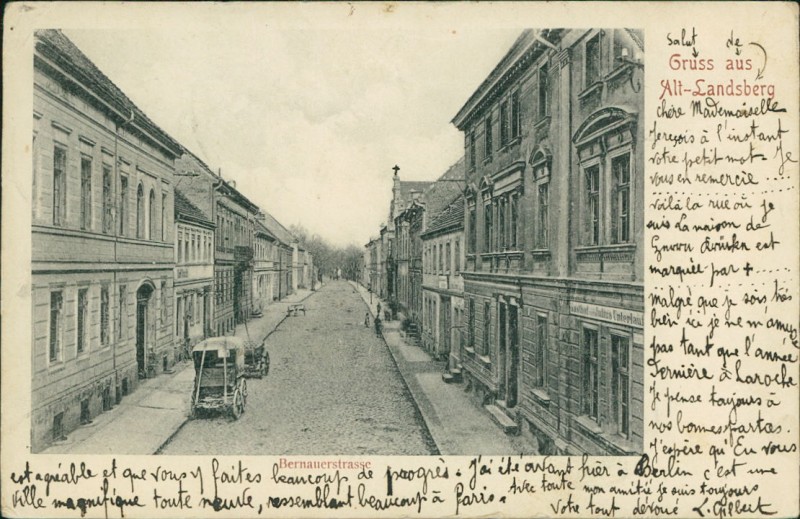 Salut de
Gruss aus
Alt-Landsberg
chère Mademoiselle
Je reçois à l'instant
votre petit mot. Je
vous en remercie ...
voilà la rue où je
suis La maison de
est
marquée par + .....
Malgré que je sois très
bien ici je ne m'amuse
pas tant que l'année
Dernière à Laroche
Je pense toujours à
nos bonnes parties.
J'espère qu' Eu vous
est agréable et que vous y faites beaucoup de progrès. J'ai été avant hier à Berlin c'est une
ville magnifique toute neuve, ressemblant beaucoup à Paris.
Avec toute mon amitié je suis toujours
Votre tout dévoué L. Gilbert
Bernauerstrasse
Gasthof von Julius